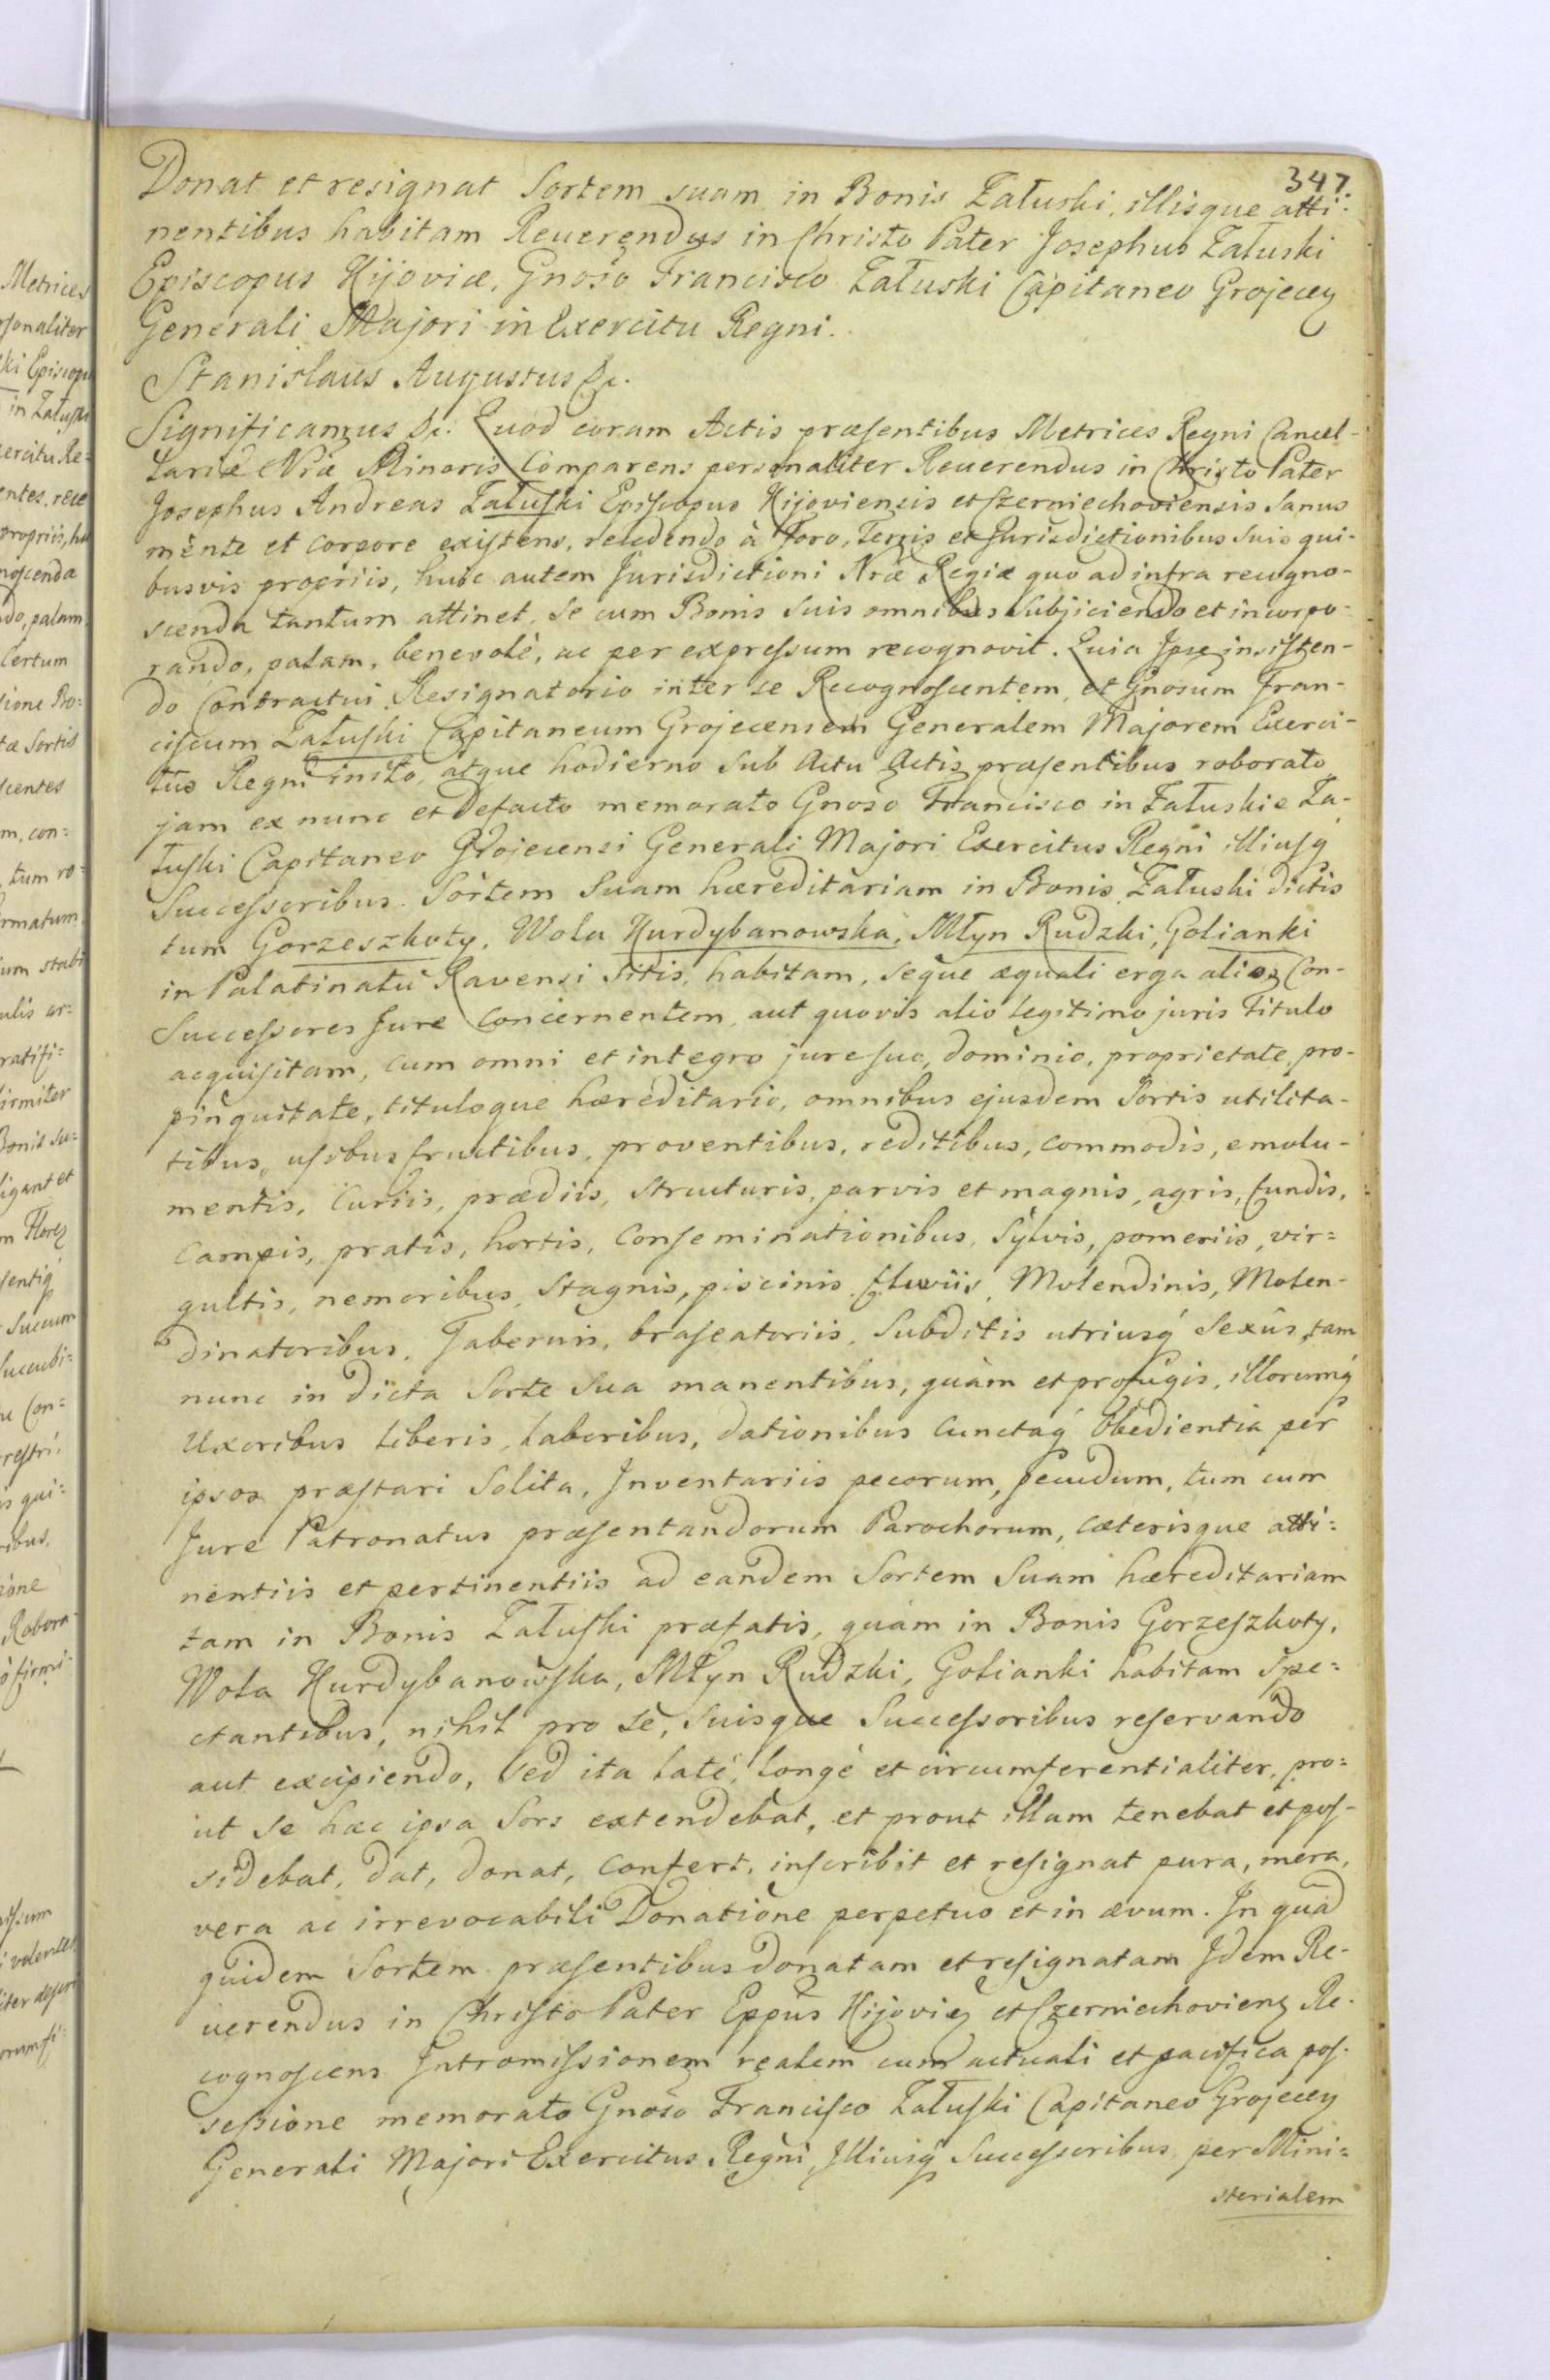 347.
Donat et resignat Sortem suam in Bonis Załuski, illisque atti-
nentibus habitam Reuerendus in Christo Pater Josephus Załuski
Episcopus Kijoviæ, Gnoso Francisco Załuski Capitaneo Grojecen
Generali Majori in Exercitu Regni.
Stanislaus Augustus &c.
Significamus &c. Quod coram Actis præsentibus Metrices Regni Cancel-
lariæ Nræ Minoris Comparens personaliter Reuerendus in Christo Pater
Josephus Andreas Załuski Episcopus Kijoviensis et Czerniechoviensis Sanus
mente et corpore existens, recedendo à Foro, Terris et Jurisdictionibus suis qui-
busvis propriis, huic autem Jurisdictioni Nræ Regiæ quo ad infra recogno-
scenda tantum attinet, se cum Bonis suis omnibus subjiciendo et incorpo-
rando, palam, benevolè, ac per expressum recognovit. Quia Ipse insisten-
do Contractui Resignatorio inter se Recognoscentem, et Gnosum Fran-
ciscum Załuski Capitaneum Grojecensem Generalem Majorem Exerci-
tus Regni inito, atque hodierno sub Actu Actis præsentibus roborato
jam ex nunc et defacto memorato Gnoso Francisco in Załuskie Za-
łuski Capitaneo Grojecensi Generali Majori Exercitus Regni illiusq
Successoribus Sortem Suam hæreditariam in Bonis Załuski dictis
tum Gorzeszkoty, Wola Kurdybanowska, Młyn Rudzki, Golianki
in Palatinatu Ravensi sitis, habitam, seque æquali erga alios Con-
Successores Jure Concernentem, aut quovis alio legitimo juris titulo
acquisitam, cum omni et integro jure suo, dominio, proprietate, pro-
pinquitate, tituloque hæreditario, omnibus ejusdem Sortis utilita-
tibus, usibus fructibus, proventibus, reditibus, commodis, emolu-
mentis, Curiis, prædiis, structuris, parvis et magnis, agris, fundis,
Campis, pratis, hortis, Conseminationibus, Sylvis, pomeriis, vir=
gultis, nemoribus, Stagnis, piscinis, fluviis, Molendinis, Molen-
dinatoribus, Tabernis, braseatoriis, Subditis utriusq́ Sexûs, tam
nunc in dicta Sorte Sua manentibus, quàm et profugis, illorumq́
Uxoribus liberis, laboribus, dationibus Cunctaq́ Obedientia per
ipsos præstari Solita, Inventariis pecorum, pecudum, tum cum
Jure Patronatus præsentandorum Parochorum, cæterisque atti=
nentiis et pertinentiis ad eandem Sortem Suam hæreditariam
tam in Bonis Załuski præfatis, quàm in Bonis Gorzeszkoty,
Wola Kurdybanowska, Młyn Rudzki, Golianki habitam Spe=
ctantibus, nihil pro sè, Suisque Successoribus reservando
aut excipiendo, sed ita latè, longè et circumferentialiter, pro=
ut se hæc ipsa Sors extendebat, et prout illam tenebat et pos-
sidebat, dat, donat, Confert, inscribit et resignat pura, mera,
vera ac irrevocabili Donatione perpetuo et in ævum. In quã
quidem Sortem præsentibus donatam et resignatam Idem Re-
uerendus in Christo Pater Eppus Kijovień et Czerniechovień Re-
cognoscens Intromissionem realem cum actuali et pacifica pos-
sessione memorato Gnoso Francisco Załuski Capitaneo Grojecen
Generali Majori Exercitus Regni, Illiusq́ Successoribus per Mini=
sterialem